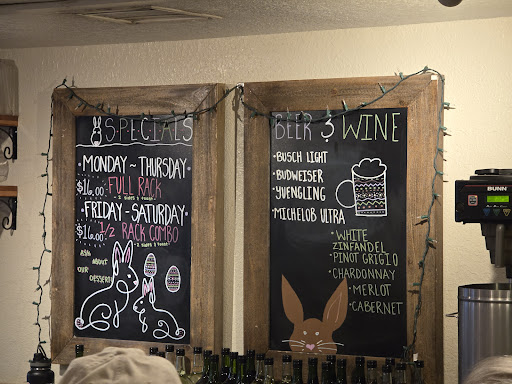 SPECIALS
• MONDAY ~ THURSDAY
$16.00 FULL RACK
- 2 SIDES & TOAST -
• FRIDAY - SATURDAY •
$16.00 1/2 RACK COMBO
2 SIDES & TOAST
ASK ABOUT
OUR
DESSERT
BEER & WINE
• BUSCH LIGHT
• BUDWEISER
• YUENGLING
• MICHELOB ULTRA
• WHITE
ZINFANDEL
• PINOT GRIGIO
• CHARDONNAY
• MERLOT
• CABERNET
BUNN